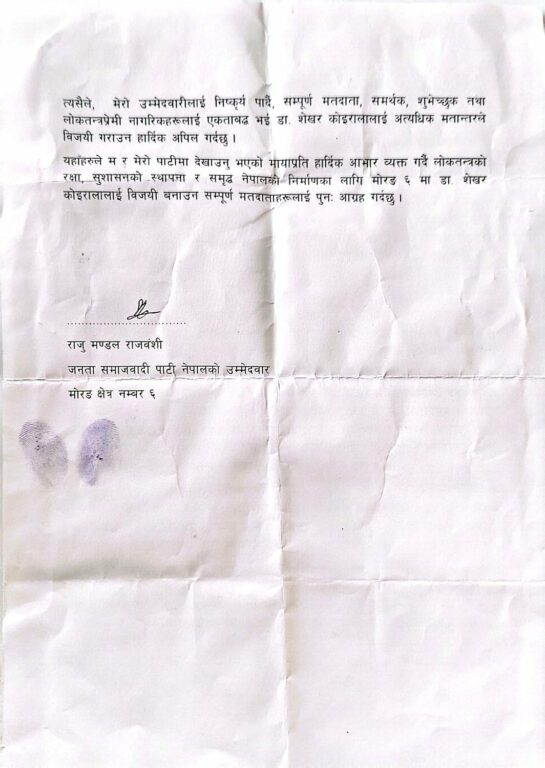 त्यसैले, मेरो उम्मेदवारीलाई निष्कृर्य पार्दै, सम्पूर्ण मतदाता, समर्थक, शुभेच्छुक तथा
लोकतन्त्रप्रेमी नागरिकहरूलाई एकताबद्ध भई डा. शेखर कोइरालालाई अत्यधिक मतान्तरले
विजयी गराउन हार्दिक अपिल गर्दछु ।
यहाँहरुले म र मेरो पार्टीमा देखाउनु भएको मायाप्रति हार्दिक आभार व्यक्त गर्दै लोकतन्त्रको
रक्षा, सुशासनको स्थापना र समृद्ध नेपालको निर्माणका लागि मोरङ ६ मा डा. शेखर
कोइरालालाई विजयी बनाउन सम्पूर्ण मतदाताहरूलाई पुनः आग्रह गर्दछु ।
राजु मण्डल राजवंशी
जनता समाजवादी पार्टी नेपालको उम्मेदवार
मोरङ क्षेत्र नम्बर ६